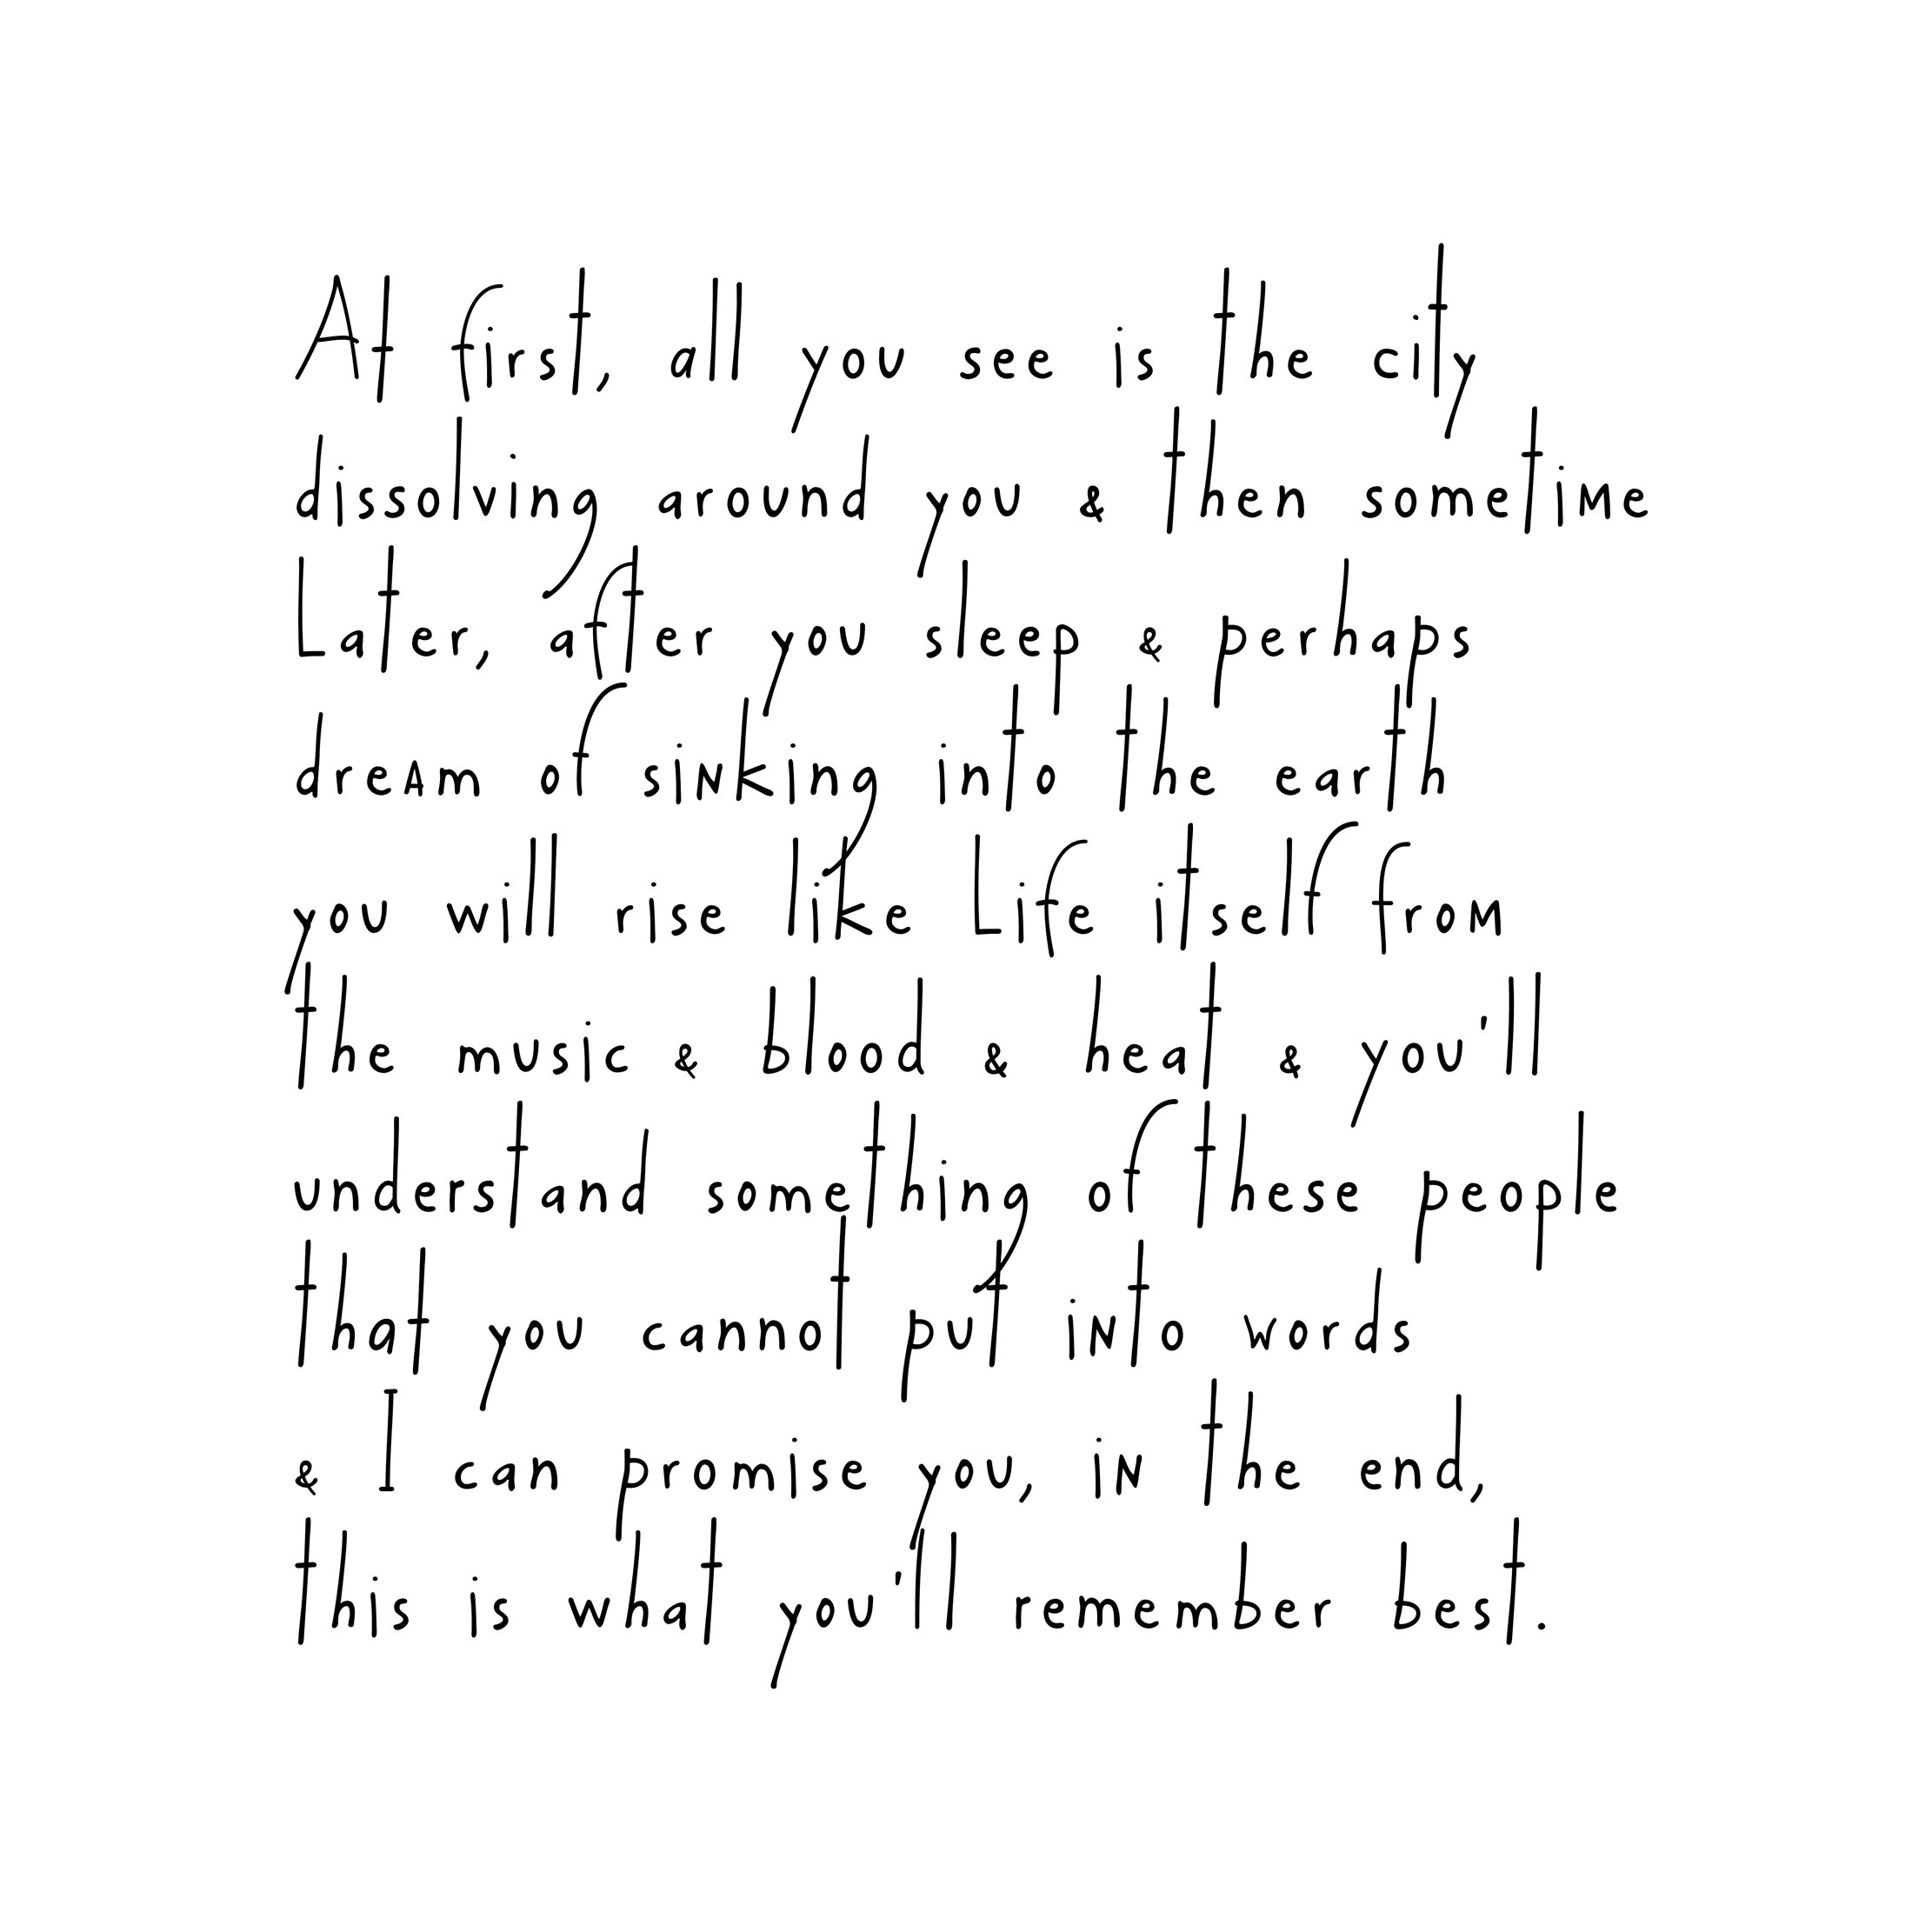 At first, all you see is the city
dissolving around you & then sometime
Later, after you sleep & perhaps
dream of sinking into the earth
you will rise like Life itself from
the music & blood & heat & you'll
understand something of these people
that you cannot put into words
& I can promise you, in the end,
this is what you'll remember best.